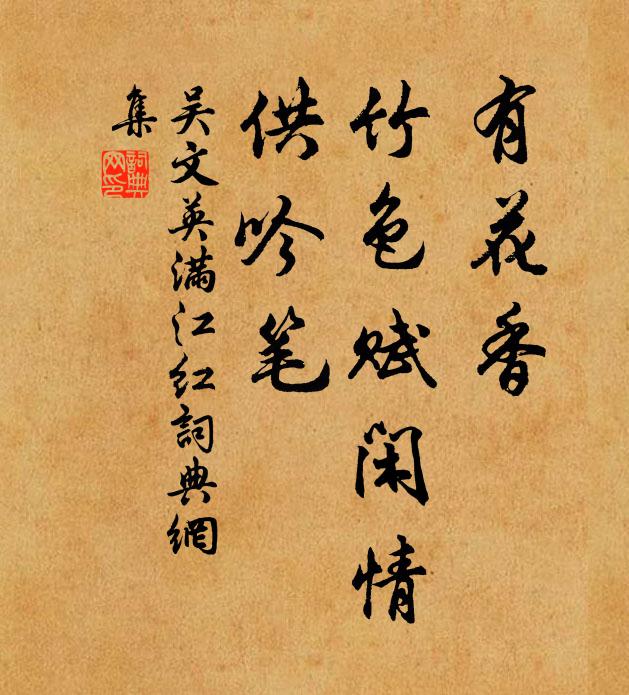 有花香
竹色赋闲情
供吟笔
吴文英满江红詞典網
集
詞典
网印